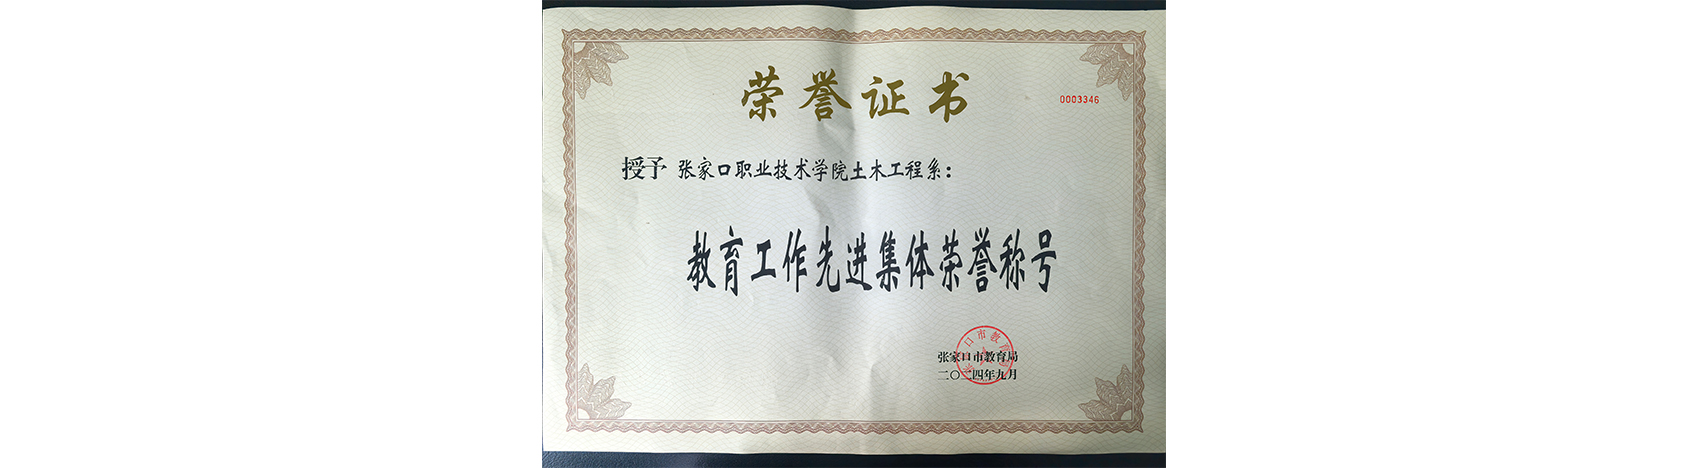 荣誉证书
0003346
授予 张家口职业技术学院土木工程系：
教育工作先进集体荣誉称号
张家口市教育局
二〇二四年九月